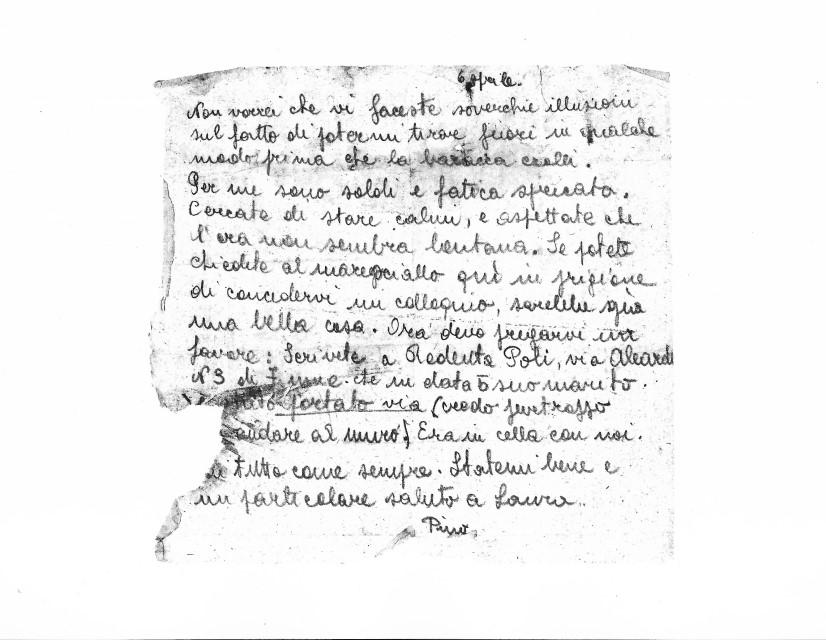 6 aprile.
Non vorrei che vi faceste soverchie illusioni
sul fatto di potermi tirare fuori in qualche
modo prima che la baracca crolli.
Per me sono soldi e fatica sprecata.
Cercate di stare calmi, e aspettate che
l'ora non sembra lontana. Se potete
chiedete al maresciallo quì in prigione
di concedervi un colloquio, sarebbe già
una bella cosa. Ora devo pregarvi un
favore: Scrivete a Redenta Poli, via Aleardi
N 3 di che in data 5 suo marito
portato via (credo purtroppo
andare al muro) Era in cella con noi.
tutto come sempre. Statemi bene e
un particolare saluto a Laura.
Pino.